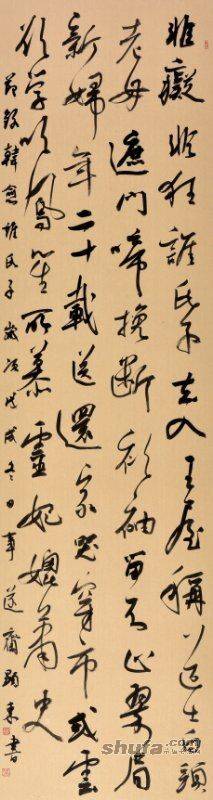 非癡非狂誰氏子去入王屋稱道士白頭
老母遮門啼挽斷衫袖留不止翠眉
新婦年二十載送還家哭穿市或雲
欲學吹鳳笙所慕靈妃媲蕭史
節錄韓愈誰氏子歲次戊戌冬日事 書
shufa.com